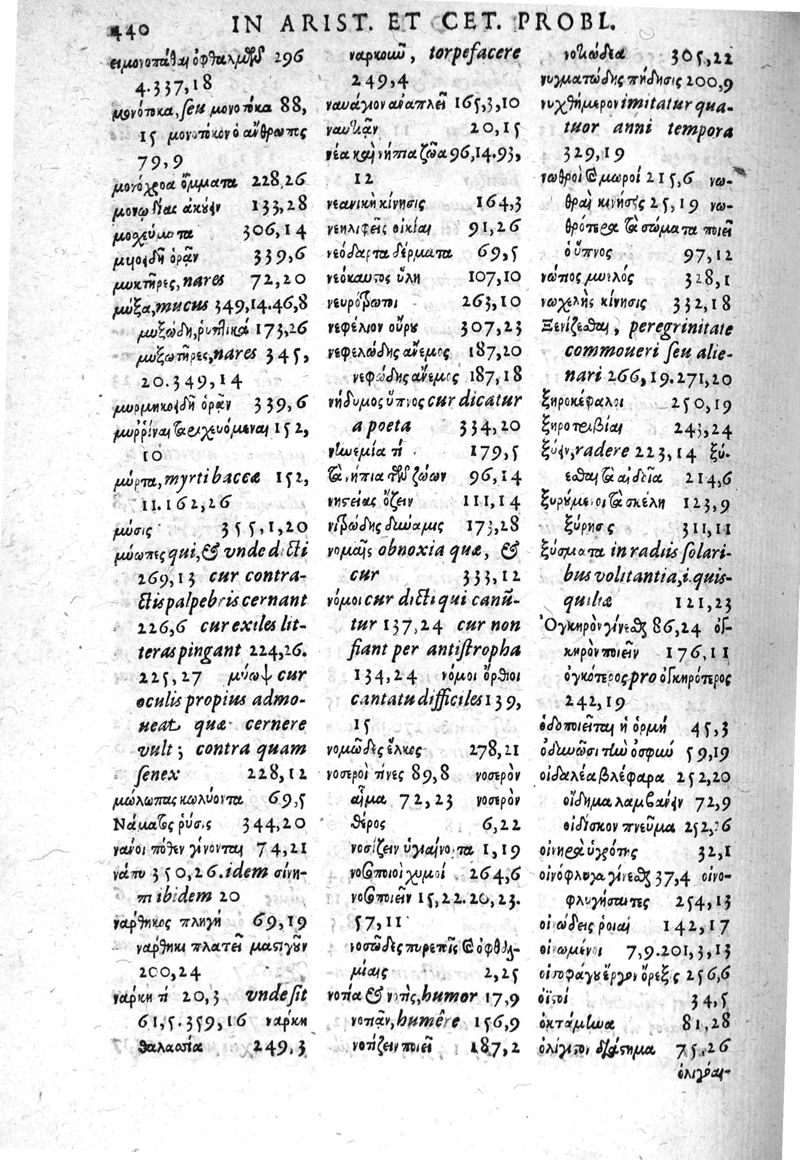 440 IN ARIST. ET CET. PROBL.
296
4.337,18
μονότοκα, seu μονοτόκα 88,
15 μονοτόκον ὁ ἄνθρωπος
79,9
μονόχροα ὄμματα 228,26
μονῳδίας ἀκούειν 133,28
μοσχεύματα 306,14
ὁρᾶν 339,6
μυκτῆρες, nares 72,20
μύξα, mucus 349,14.46,8
μυξώδη, ῥυπτικὰ 173,26
μυξωτῆρες, nares 345,
20.349,14
μυρμηκοειδῆ ὁρᾶν 339,6
152,
10
μύρτα, myrti baccæ 152,
11.162,26
μύσις 355,1,20
μύωπες qui, & vnde dicti
269,13 cur contra-
ctis palpebris cernant
226,6 cur exiles lit-
teras pingant 224,26.
225,27 μύωψ cur
oculis propius admo-
ueat quæ cernere
vult; contra quam
senex 228,12
μώλωπας κωλύοντα 69,5
Νάματος ῥύσις 344,20
νάνοι πόθεν γίνονται 74,21
νάπυ 350,26. idem σίνη-
πι ibidem 20
νάρθηκος πληγὴ 69,19
νάρθηκι πλατεῖ μαστιγοῦν
200,24
νάρκη τί 20,3 vnde sit
61,5.359,16 νάρκη
θαλασσία 249,3
ναρκοῦν, torpefacere
249,4
ναυάγιον ἀναπλεῖ 165,3,10
ναυτιᾶν 20,15
νέα καὶ νήπια ζῶα 96,14.93,
12
νεανικὴ κίνησις 164,3
νεηλιφεῖς οἰκίαι 91,26
νεόδαρτα δέρματα 69,5
νεόκαυτος ὕλη 107,10
νευρόβωτοι 263,10
νεφέλιον οὔρου 307,23
νεφελώδης ἄνεμος 187,20
νεφώδης ἄνεμος 187,18
νήδυμος ὕπνος cur dicatur
a poeta 334,20
νηνεμία τί 179,5
τὰ νήπια τῶν ζώων 96,14
νηστείας ὄζειν 111,14
νιτρώδης δύναμις 173,28
νομαῖς obnoxia quæ, &
cur 333,12
νόμοι cur dicti qui canũ-
tur 137,24 cur non
fiant per antistropha
134,24 νόμοι ὄρθιοι
cantatu difficiles 139,
15
νομῶδες ἕλκος 278,21
νοσεροὶ τίνες 89,8 νοσερὸν
αἷμα 72,23 νοσερὸν
θέρος 6,22
νοσίζειν ὑγιαίνοντα 1,19
νοσοποιοὶ χυμοί 264,6
νοσοποιεῖν 15,22.20,23.
57,11
νοσώδες πυρετοῖς καὶ ὀφθαλ-
μίαις 2,25
νοτία & νοτὶς, humor 17,9
νοτιᾶν, humêre 156,9
νοτίζειν ποιεῖ 187,2
305,22
νυγματώδης πήδησις 200,9
νυχθήμερον imitatur qua-
tuor anni tempora
329,19
νωθροὶ καὶ μωροί 215,6 νω-
θραὶ κινήσεις 25,19 νω-
θρότερα τὰ σώματα ποιεῖ
ὁ ὕπνος 97,12
328,1
νωχελὴς κίνησις 332,18
Ξενίζεσθαι, peregrinitate
commoueri seu alie-
nari 266,19.271,20
ξηροκέφαλοι 250,19
ξηροτριβίαι 243,24
ξύειν, radere 223,14 ξύ-
εσθαι τὰ αἰδοῖα 214,6
ξυρώμενοι τὰ σκέλη 123,9
ξύρησις 311,11
ξύσματα in radiis solari-
bus volitantia, i. quis-
quiliæ 121,23
Ὀγκηρὸν γίνεσθαι 86,24 ὀγ-
κηρὸν ποιεῖν 176,11
ὀγκότερος pro ὀγκηρότερος
242,19
ὁδοποιεῖται ἡ ὁρμή 45,3
ὀδυνῶσι τὴν ὀσφύν 59,19
οἰδαλέα βλέφαρα 252,20
οἴδημα λαμβάνειν 72,9
οἰδίσκον πνεῦμα 252,26
οἰνηρὰ ὑγρότης 32,1
οἰνόφλυγα γίνεσθαι 37,4 οἰνο-
φλυγήσαντες 254,13
οἰνώδεις ῥοιαί 142,17
οἰνωμένοι 7,9.201,3,13
256,6
οἰστοί 34,5
ὀκτάμηνα 81,28
ὀλίγιστον διάστημα 75,26
ὀλιγόαι-